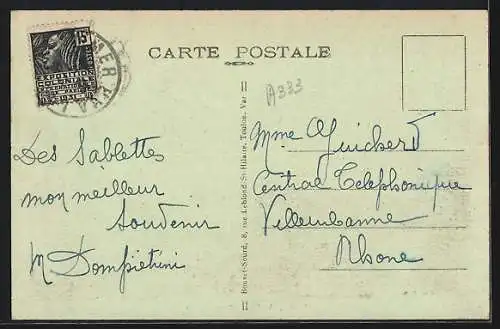 15
EXPOSITION
COLONIALE
INTERNATIONALE
CARTE POSTALE
A333
Des Sablettes
mon meilleur
souvenir
M Dompietrini
Bonnet-Sourd, 8, rue Leblond-St-Hilaire, Toulon, Var
Mme Guichert
Central Telephonique
Villeurbanne
Rhone